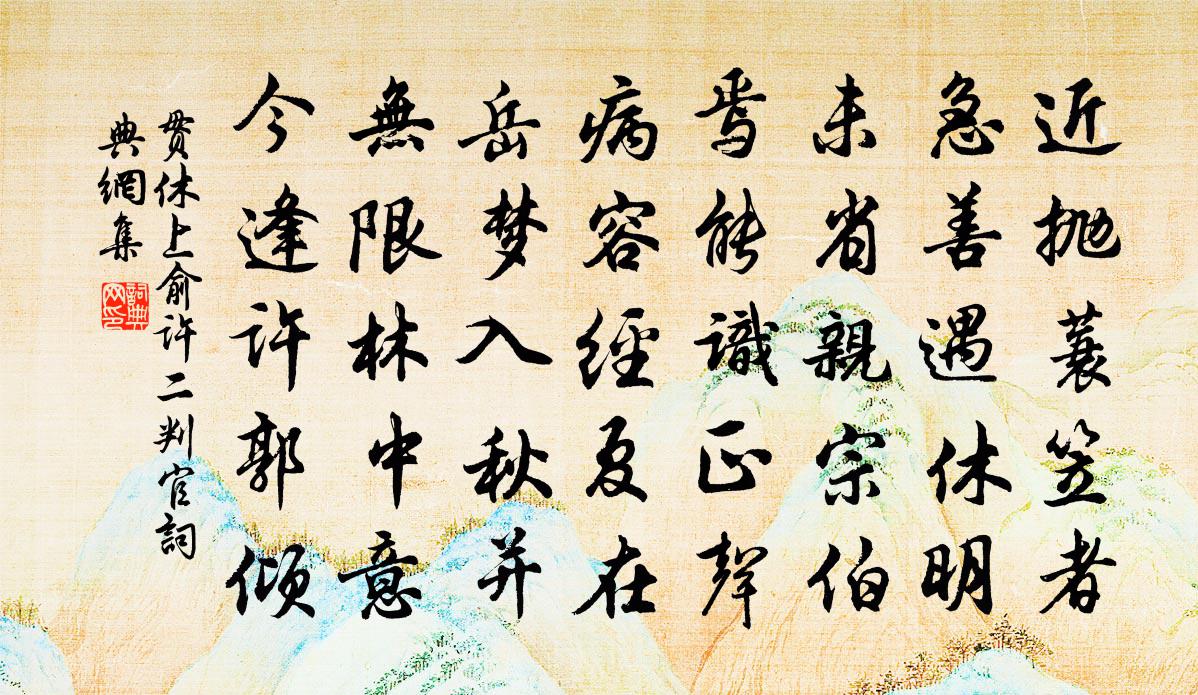 近抛蓑笠者
急善遇休明
未省親宗伯
焉能識正聲
病容經夏在
岳梦入秋并
無限林中意
今逢许郭傾
贯休上俞许二判官詞
典網集
詞典
网印